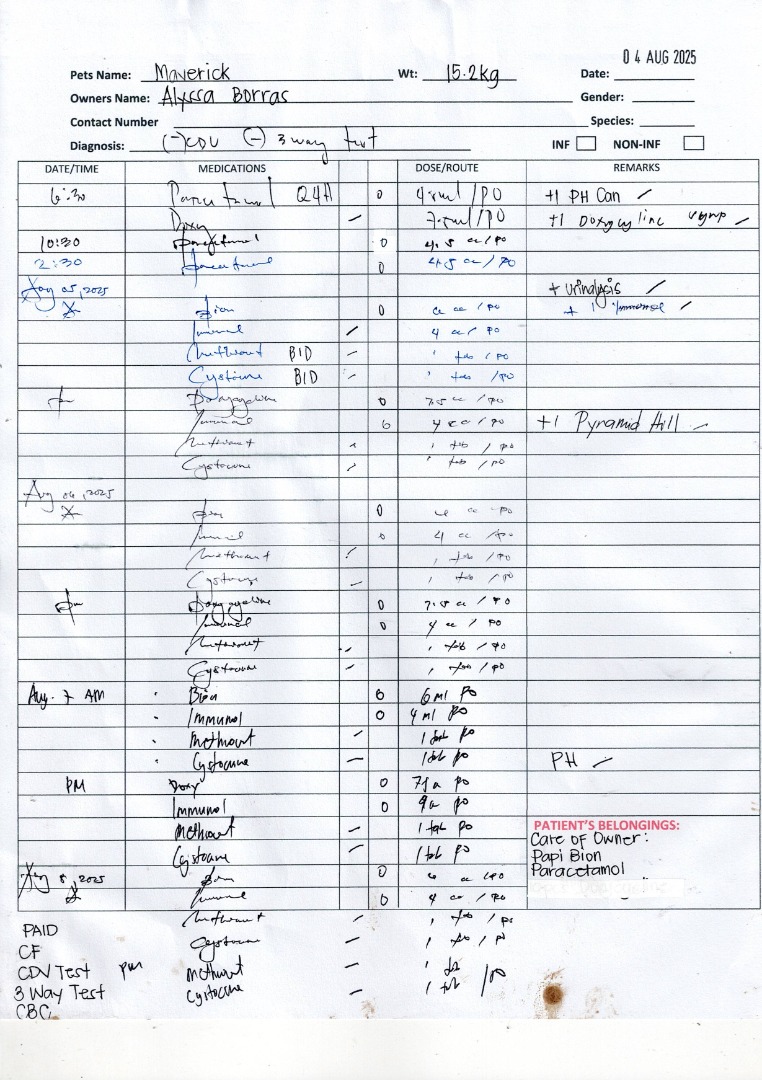 04 AUG 2025
Pets Name: Maverick Wt: 15.2kg Date:
Owners Name: Alyssa Borras Gender:
Contact Number Species:
Diagnosis: (-) CDV (-) 3 way test INF NON-INF
DATE/TIME MEDICATIONS DOSE/ROUTE REMARKS
6:30 Paracetamol Q4H 0 4.5ml / PO +1 PH Can
Doxy 7.5ml / PO +1 Doxycycline syrup
10:30 Paracetamol 0 4.5 cc / PO
2:30 Paracetamol 0 4.5 cc / PO
Aug 05, 2025 + urinalysis
Bion 0 cc / PO + 1 Immunol
Immunol 4 cc / PO
Methiovet BID 1 tab / PO
Cystocure BID 1 tab / PO
pm Doxycycline 0 7.5 cc / PO
Immunol 0 4 cc / PO +1 Pyramid Hill
Methiovet 1 tab / PO
Cystocure 1 tab / PO
Aug 06, 2025
Bion 0 cc / PO
Immunol 0 4 cc / PO
Methiovet 1 tab / PO
Cystocure 1 tab / PO
pm Doxycycline 0 7.5 cc / PO
Immunol 0 4 cc / PO
Methiovet 1 tab / PO
Cystocure 1 tab / PO
Aug. 7 AM Bion 0 6 ml PO
Immunol 0 4 ml PO
Methiovet 1 tab PO
Cystocure 1 tab PO PH
PM Doxy 0 PO
Immunol 0 PO
Methiovet 1 tab PO
Cystocure 1 tab PO
PATIENT'S BELONGINGS:
Care of Owner:
Papi Bion
Paracetamol
Aug 8, 2025 Bion 0 cc PO
Immunol 0 4 cc / PO
Methiovet 1 tab / PO
Cystocure 1 tab / PO
PAID
CF
CDV Test pm Methiovet 1 tab / PO
3 Way Test Cystocure 1 tab
CBC